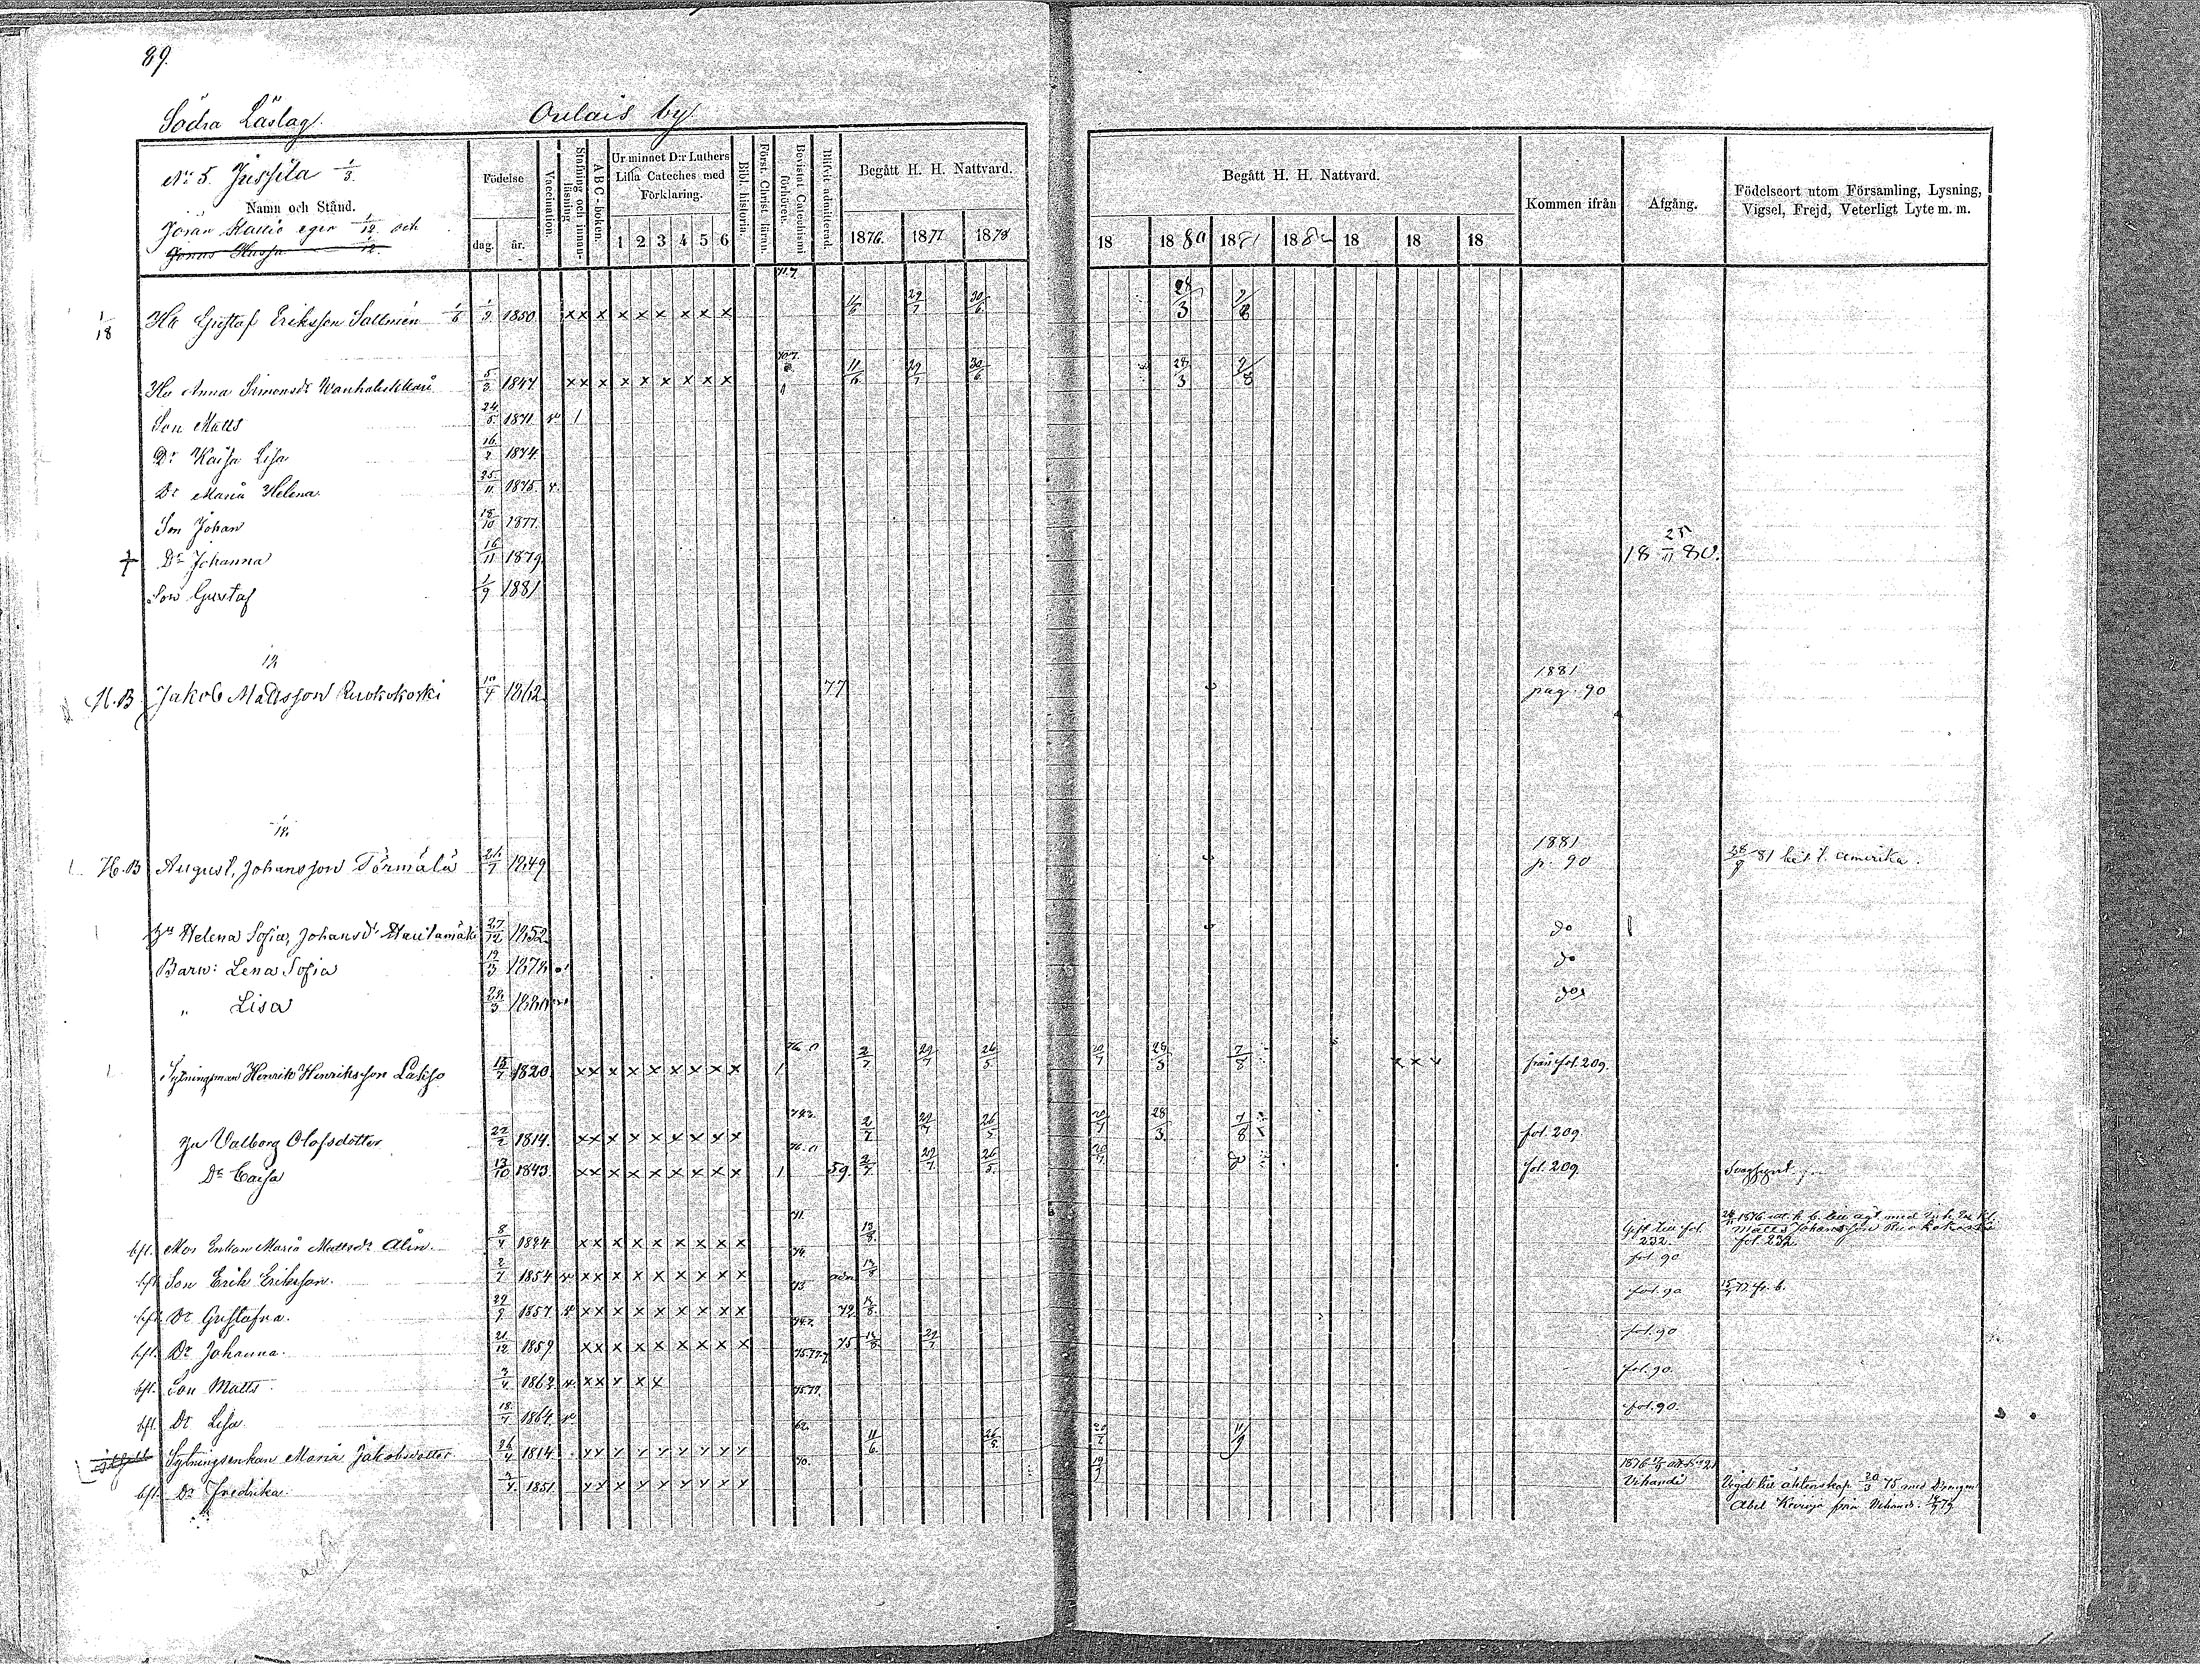 89.
Södra Läslag.
Oulais by
No 5. Jussila 1/3.
Namn och Stånd.
Jöran Kallio eger 1/12 och
Jonas Hussa 1/12.
Födelse
dag. år.
Vaccination.
Stafning och innan-läsning
ABC-boken.
Ur minnet D:r Luthers
Lilla Cateches med
Förklaring.
1 2 3 4 5 6
Bibl. historia.
Förstår Christ. läran.
Bevistat Catechismi förhören.
Blifvit admitterad.
Begått H. H. Nattvard.
1876. 1877 1878
Begått H. H. Nattvard.
18 1880 1881 1882 18 18 18
Kommen ifrån
Afgång.
Födelseort utom Församling, Lysning,
Vigsel, Frejd, Veterligt Lyte m. m.
1/18 Hb Gustaf Eriksson Sallmén 1/6 1/9 1850 x x x x x x x x x 11/6 29/7 30/6 28/3 7/8
Hu Anna Simonsdr 5/3 1847 x x x x x x x x x 11/6 29/7 30/6 28/3 7/8
Son Matts 24/5 1871 v 1
Dr Kaisa Lisa 16/2 1874.
Dr Maria Helena 25/11 1875 v.
Son Johan 18/10 1877.
† Dr Johanna 16/11 1879 18 25/11 80.
Son Gustaf 1/9 1881
H.B Jakob Mattsson Ruokokoski 10/4 1862 77 1881 pag. 90
H.B August, Johansson Törmälä 26/7 1849 1881 p. 90 28/9 81 bet. t. amerika.
Hu Helena Sofia, Johansdr Hautamäki 27/12 1852 do
Barn: Lena Sofia 19/3 1878 do
" Lisa 28/3 1880 do
Sytningsman Henrik Henriksson Lakso 15/7 1820. x x x x x x x x x 1 2/7 29/7 26/5 20/7 28/3 7/8 x x x från fol. 209.
Hu Valborg Olofsdotter 22/2 1814. x x x x x x x x x 2/7 29/7 26/5 20/7 28/3 7/8 fol. 209.
Dr Caisa 13/10 1843 x x x x x x x x x 1 59. 2/7 29/7 26/5 20/7 fol. 209.
bft. Mor Enkan Maria Mattsdr Alin. 8/4 1824 x x x x x x x x x 13/8 fol. 232. Matts Johansson Ruokokoski fol. 232
bft. Son Erik Eriksson. 2/7 1854 v x x x x x x x x x adm 13/8 fol. 90
bft. Dr Gustafva. 29/9 1857 v x x x x x x x x x 72 13/8 fol. 90
bft. Dr Johanna. 21/12 1859 x x x x x x x x x 75. 13/8 29/7 fol. 90
bft. Son Matts. 3/4 1862 v. x x x x x fol. 90.
bft. Dr Lisa 18/7 1864 v fol. 90.
Sytningsenkan Maria Jakobsdotter 26/4 1814 x x x x x x x x x 11/6 26/5 11/9
bft. Dr Fredrika. 3/4 1851. x x x x x x x x x Vihandi Vigd till äktenskap 20/3 75 med Drängen
Abel från Vihandi.